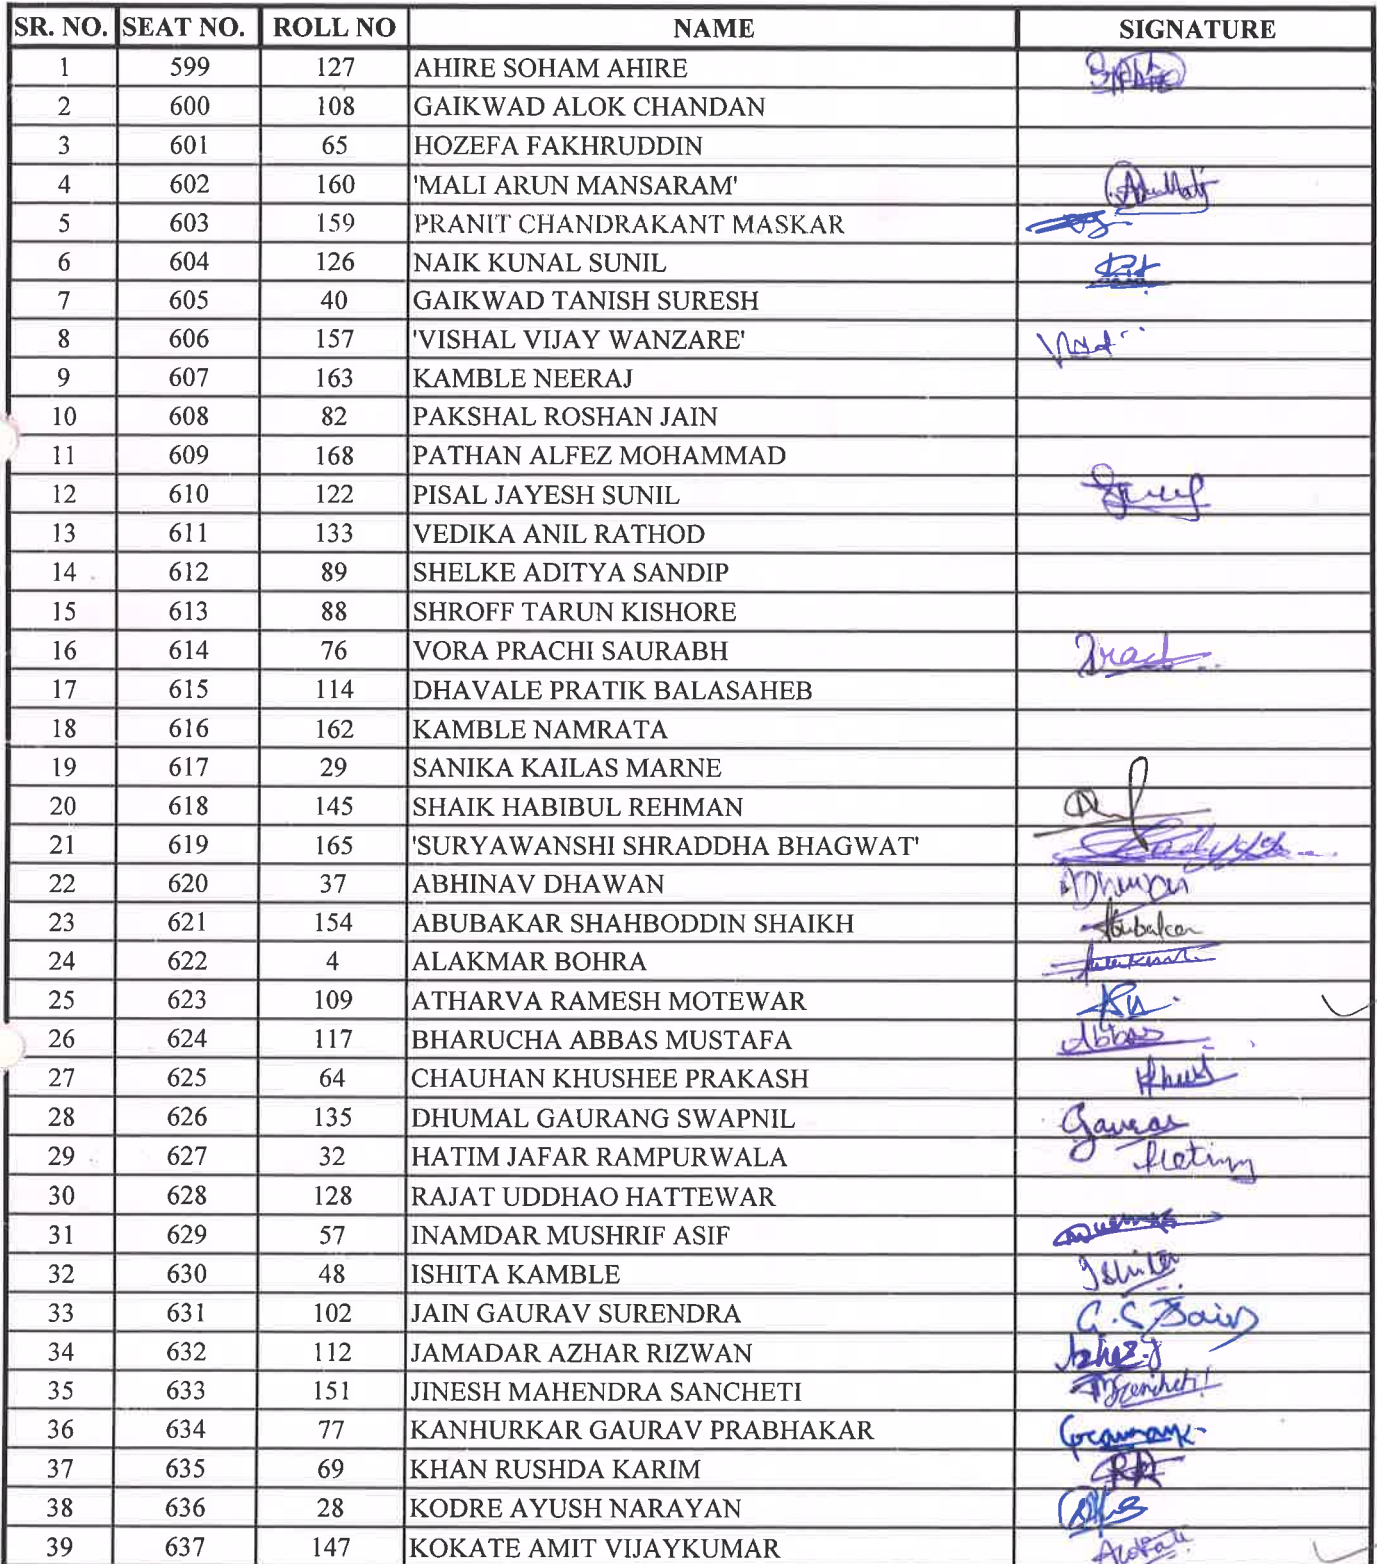 SR. NO. SEAT NO. ROLL NO NAME SIGNATURE
1 599 127 AHIRE SOHAM AHIRE
2 600 108 GAIKWAD ALOK CHANDAN
3 601 65 HOZEFA FAKHRUDDIN
4 602 160 'MALI ARUN MANSARAM'
5 603 159 PRANIT CHANDRAKANT MASKAR
6 604 126 NAIK KUNAL SUNIL
7 605 40 GAIKWAD TANISH SURESH
8 606 157 'VISHAL VIJAY WANZARE'
9 607 163 KAMBLE NEERAJ
10 608 82 PAKSHAL ROSHAN JAIN
11 609 168 PATHAN ALFEZ MOHAMMAD
12 610 122 PISAL JAYESH SUNIL
13 611 133 VEDIKA ANIL RATHOD
14 612 89 SHELKE ADITYA SANDIP
15 613 88 SHROFF TARUN KISHORE
16 614 76 VORA PRACHI SAURABH
17 615 114 DHAVALE PRATIK BALASAHEB
18 616 162 KAMBLE NAMRATA
19 617 29 SANIKA KAILAS MARNE
20 618 145 SHAIK HABIBUL REHMAN
21 619 165 'SURYAWANSHI SHRADDHA BHAGWAT'
22 620 37 ABHINAV DHAWAN
23 621 154 ABUBAKAR SHAHBODDIN SHAIKH
24 622 4 ALAKMAR BOHRA
25 623 109 ATHARVA RAMESH MOTEWAR
26 624 117 BHARUCHA ABBAS MUSTAFA Abbas
27 625 64 CHAUHAN KHUSHEE PRAKASH
28 626 135 DHUMAL GAURANG SWAPNIL
29 627 32 HATIM JAFAR RAMPURWALA
30 628 128 RAJAT UDDHAO HATTEWAR
31 629 57 INAMDAR MUSHRIF ASIF
32 630 48 ISHITA KAMBLE
33 631 102 JAIN GAURAV SURENDRA G.S Jain
34 632 112 JAMADAR AZHAR RIZWAN
35 633 151 JINESH MAHENDRA SANCHETI
36 634 77 KANHURKAR GAURAV PRABHAKAR
37 635 69 KHAN RUSHDA KARIM
38 636 28 KODRE AYUSH NARAYAN
39 637 147 KOKATE AMIT VIJAYKUMAR